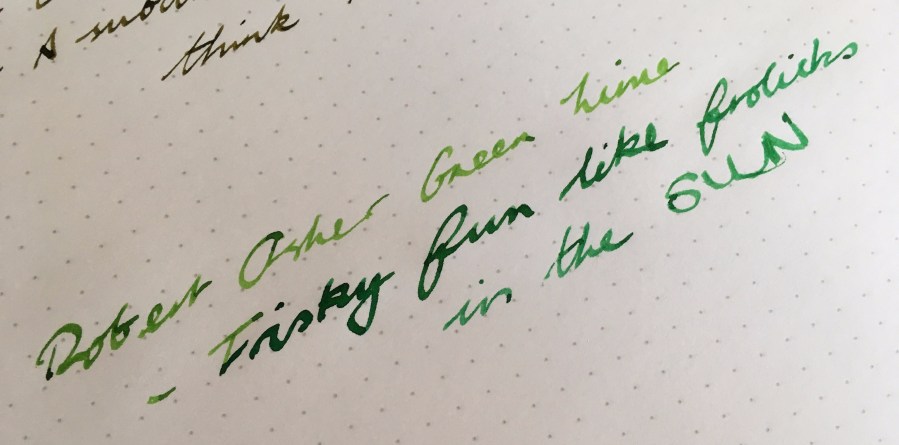 - A
think
Robert Osher Green Lime
- Frisky fun like frolicks
in the SUN